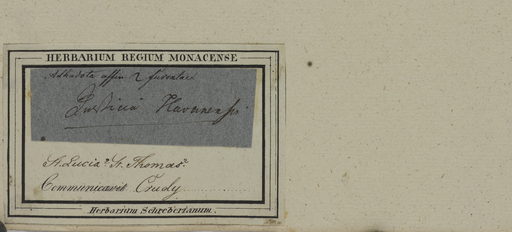 HERBARIUM REGIUM MONACENSE
Adhadota affin
Justicia Havanensis
St. Lucia? St. Thomas?
Communicavit Crudy
Herbarium Schreberianum.